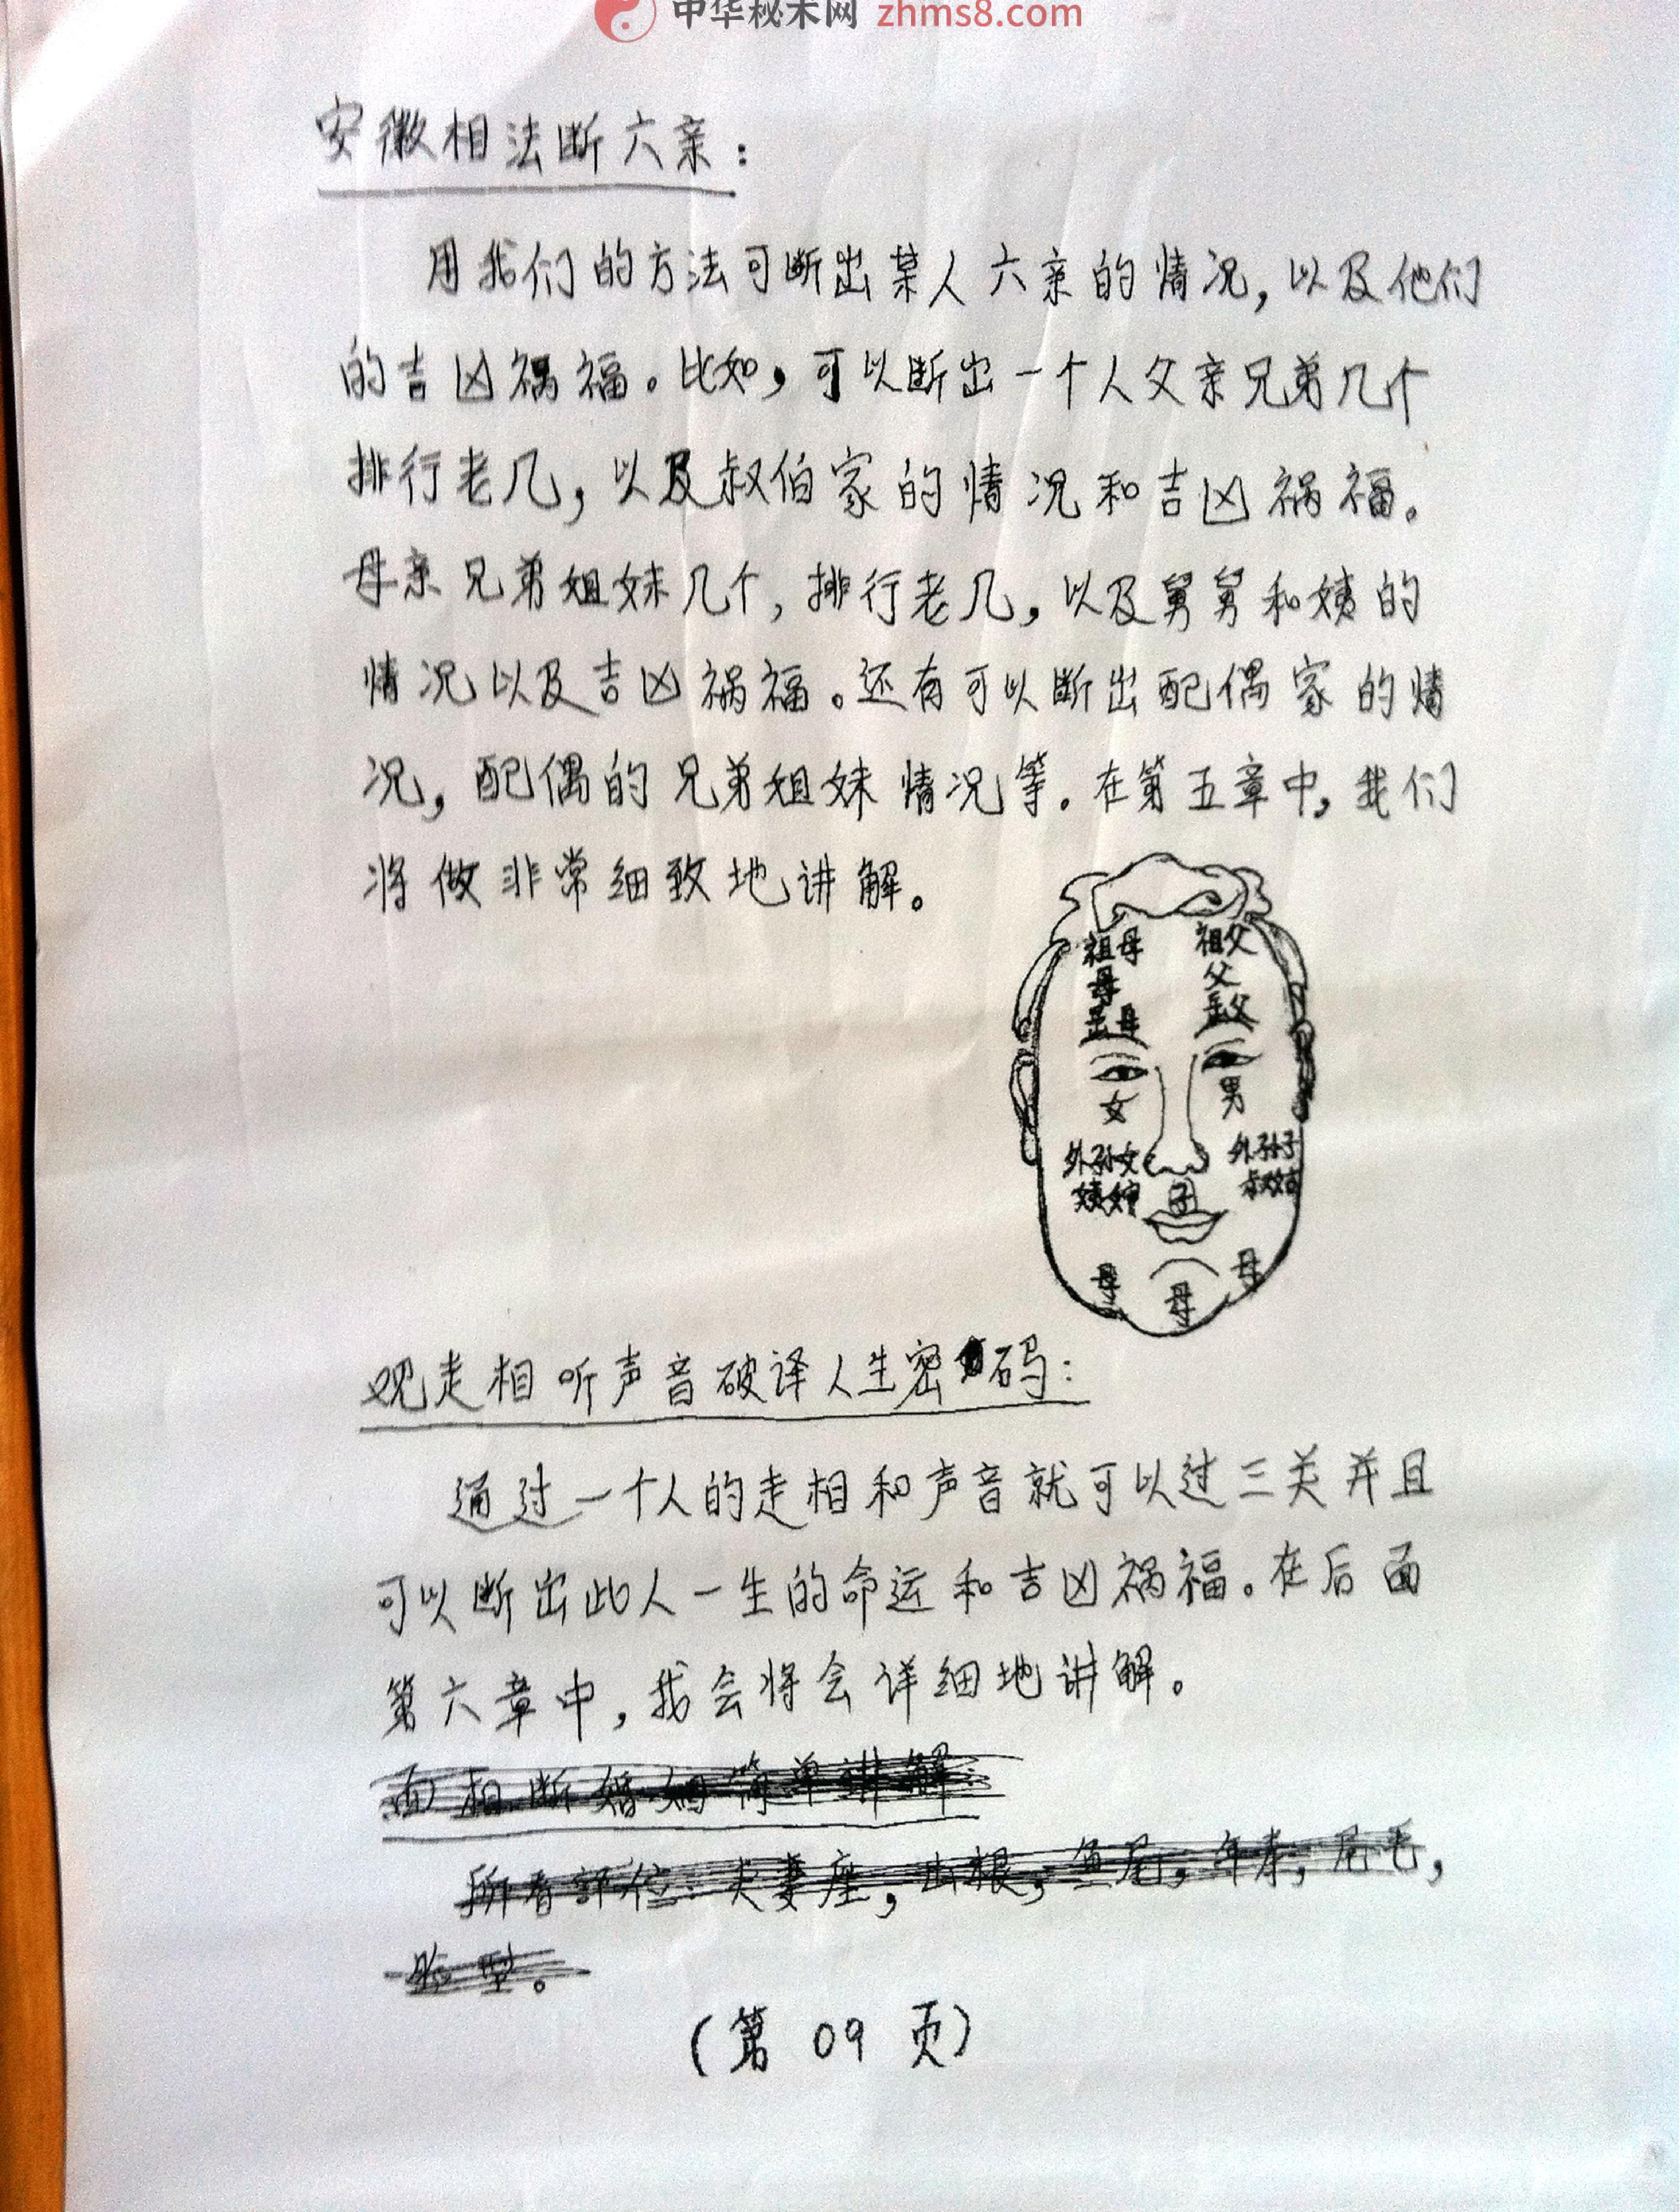 中华秘术网 zhms8.com
安徽相法断六亲：
用我们的方法可断出某人六亲的情况，以及他们
的吉凶祸福。比如，可以断出一个人父亲兄弟几个
排行老几，以及叔伯家的情况和吉凶祸福。
母亲兄弟姐妹几个，排行老几，以及舅舅和姨的
情况以及吉凶祸福。还有可以断出配偶家的情
况，配偶的兄弟姐妹情况等。在第五章中，我们
将做非常细致地讲解。
祖母 祖父
母 父
岳母 岳父
女 男
外孙女 外孙子
叔姑
子
母 母 母
观走相听声音破译人生密码：
通过一个人的走相和声音就可以过三关并且
可以断出此人一生的命运和吉凶祸福。在后面
第六章中，我会将会详细地讲解。
面相断婚姻简单讲解：
所看部位：夫妻座，山根，鱼尾，年寿，眉毛，
脸型。
（第 09 页）